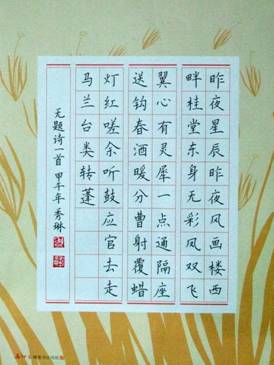 昨夜星辰昨夜风画楼西
畔桂堂东身无彩凤双飞
翼心有灵犀一点通隔座
送钩春酒暖分曹射覆蜡
灯红嗟余听鼓应官去走
马兰台类转蓬
无题诗一首 甲午年秀琳